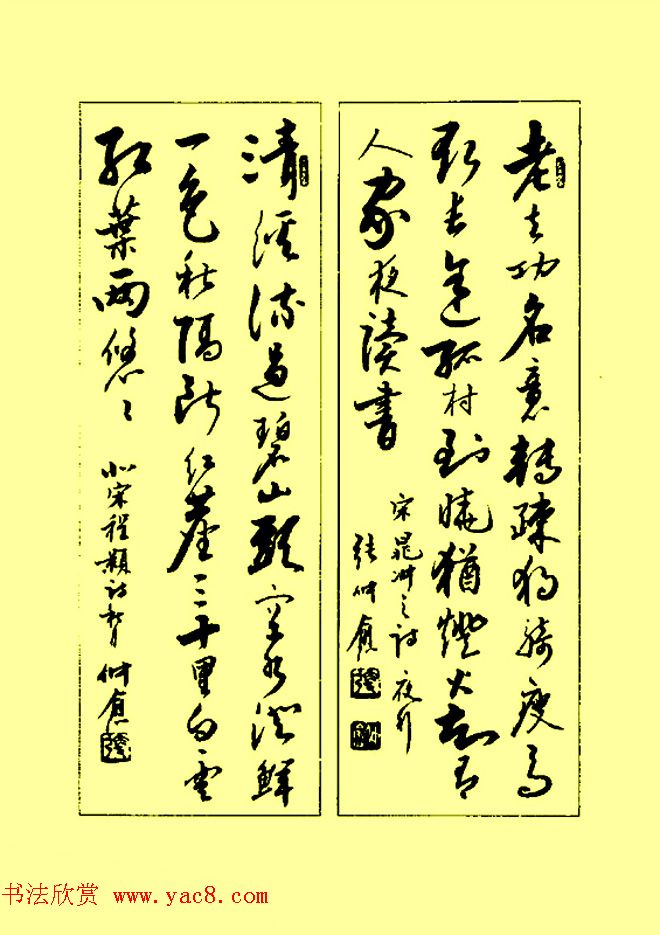 老去功名意轉疎獨騎瘦馬
取長途孤村到曉猶燈火知有
人家夜讀書
宋晁冲之詩夜行
張仲愈
清溪流過碧山頭空水澄鮮
一色秋隔斷紅塵三十里白雲
紅葉兩悠々
北宋程顥詩秋月 仲愈
书法欣赏 www.yac8.com